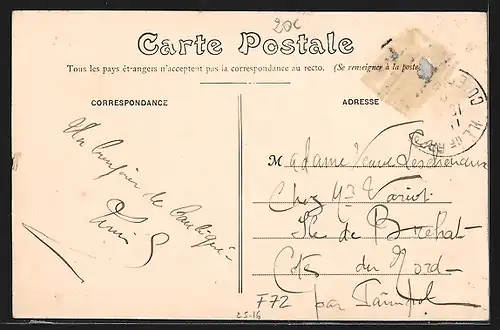 20c
Carte Postale
Tous les pays étrangers n'acceptent pas la correspondance au recto. (Se renseigner à la poste)
CORRESPONDANCE
ADRESSE
Un bonjour de
Madame Veuve
Chez Mr Variot
Ile de Brehat
Cotes du Nord
par Paimpol
F72
25-16